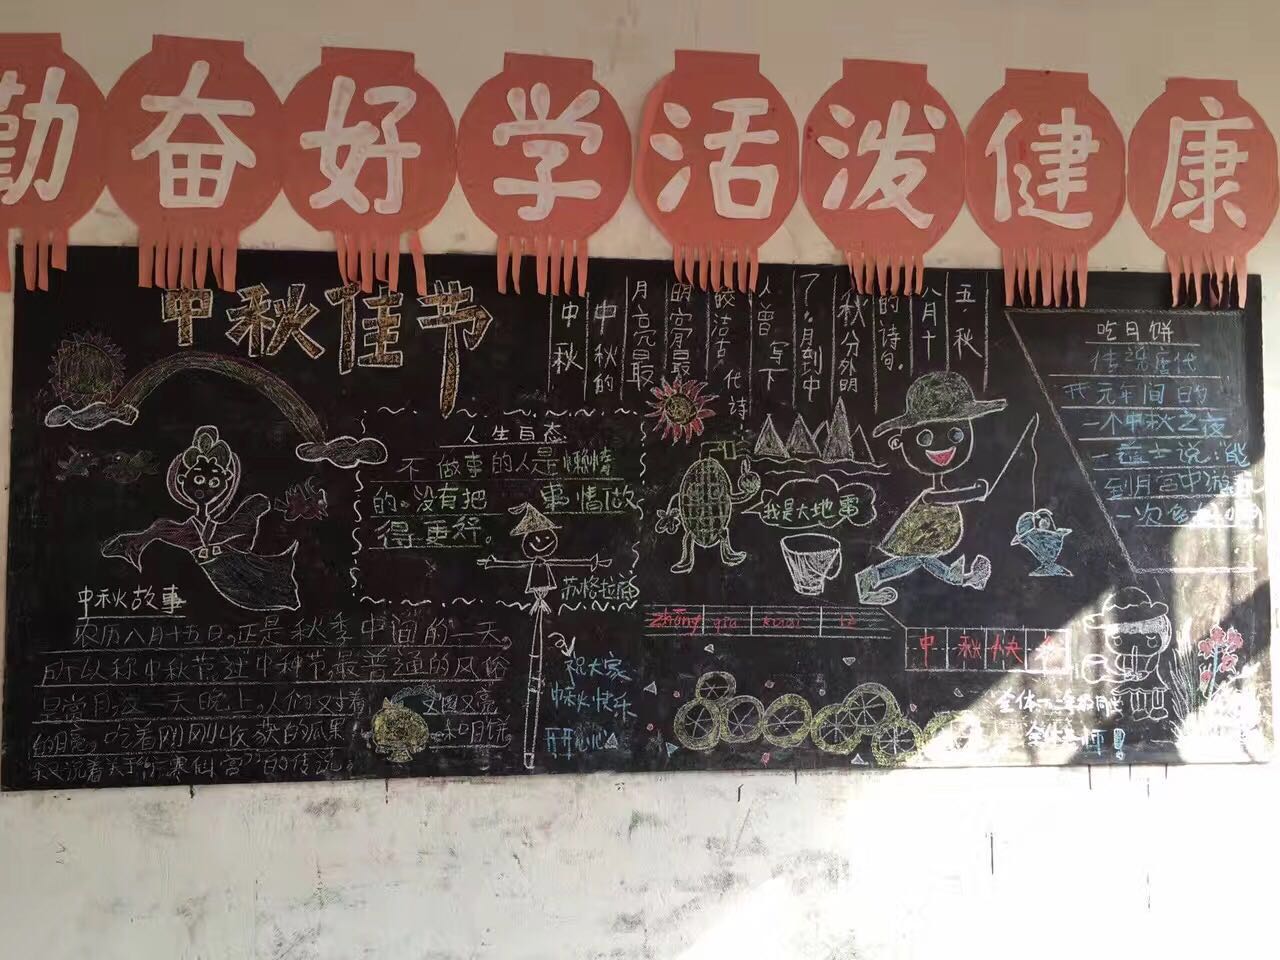 勤奋好学活泼健康
中秋佳节
五·秋
八月十
的诗句。
秋分外明
了。月到中
人曾写下
皎洁古代诗
明亮最
月亮最
中秋的
中秋
吃月饼
传说唐代
开元年间的
一个中秋之夜
一道士说,能
到月宫中游
一次
人生百态
不做事的人是懒惰
的。没有把事情做
得更好。
苏格拉底
我是大地雷
中秋故事
农历八月十五日,正是秋季中间的一天。
所以称中秋节。过中秋节,最普通的风俗
是当月这一天晚上,人们对着又圆又亮
的月亮。吃着刚刚收获的瓜果和月饼,
来说着关于的传说。
祝大家
中秋快乐
开开心心
zhōng qiū kuài lè
中秋快乐
全体
全体老师!